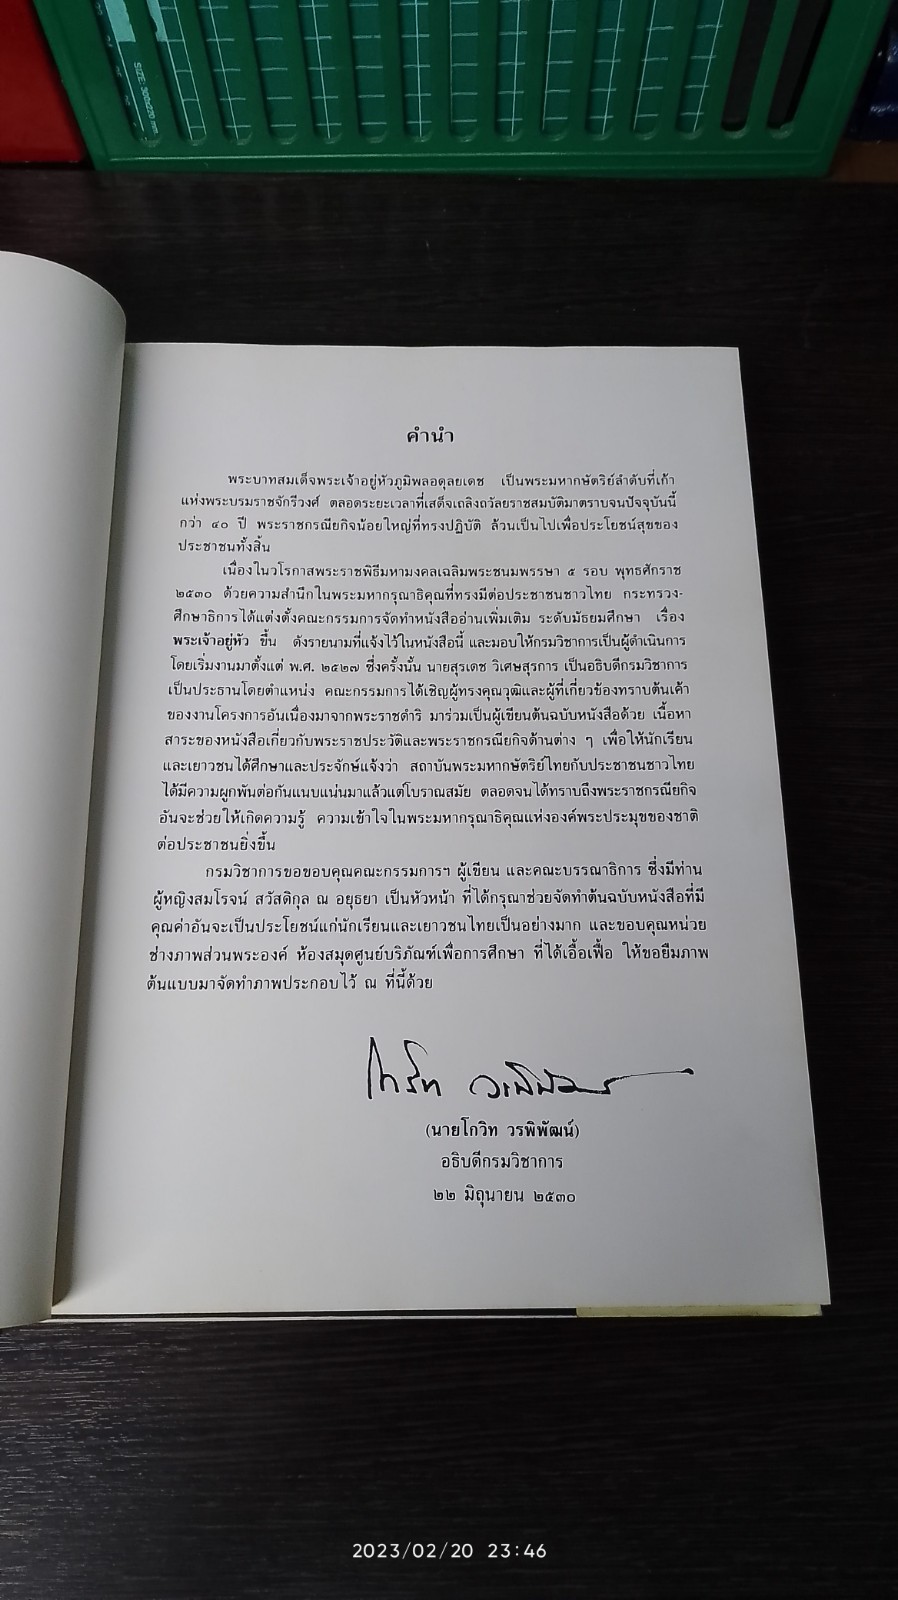 SIZE: 300x220 mm
คำนำ
พระบาทสมเด็จพระเจ้าอยู่หัวภูมิพลอดุลยเดช เป็นพระมหากษัตริย์ลำดับที่เก้า
แห่งพระบรมราชจักรีวงศ์ ตลอดระยะเวลาที่เสด็จเถลิงถวัลยราชสมบัติมาตราบจนปัจจุบันนี้
กว่า ๔๐ ปี พระราชกรณียกิจน้อยใหญ่ที่ทรงปฏิบัติ ล้วนเป็นไปเพื่อประโยชน์สุขของ
ประชาชนทั้งสิ้น
เนื่องในวโรกาสพระราชพิธีมหามงคลเฉลิมพระชนมพรรษา ๕ รอบ พุทธศักราช
๒๕๓๐ ด้วยความสำนึกในพระมหากรุณาธิคุณที่ทรงมีต่อประชาชนชาวไทย กระทรวง-
ศึกษาธิการได้แต่งตั้งคณะกรรมการจัดทำหนังสืออ่านเพิ่มเติม ระดับมัธยมศึกษา เรื่อง
พระเจ้าอยู่หัว ขึ้น ดังรายนามที่แจ้งไว้ในหนังสือนี้ และมอบให้กรมวิชาการเป็นผู้ดำเนินการ
โดยเริ่มงานมาตั้งแต่ พ.ศ. ๒๕๒๗ ซึ่งครั้งนั้น นายสุรเดช วิเศษสุรการ เป็นอธิบดีกรมวิชาการ
เป็นประธานโดยตำแหน่ง คณะกรรมการได้เชิญผู้ทรงคุณวุฒิและผู้ที่เกี่ยวข้องทราบต้นเค้า
ของงานโครงการอันเนื่องมาจากพระราชดำริ มาร่วมเป็นผู้เขียนต้นฉบับหนังสือด้วย เนื้อหา
สาระของหนังสือเกี่ยวกับพระราชประวัติและพระราชกรณียกิจด้านต่าง ๆ เพื่อให้นักเรียน
และเยาวชนได้ศึกษาและประจักษ์แจ้งว่า สถาบันพระมหากษัตริย์ไทยกับประชาชนชาวไทย
ได้มีความผูกพันต่อกันแนบแน่นมาแล้วแต่โบราณสมัย ตลอดจนได้ทราบถึงพระราชกรณียกิจ
อันจะช่วยให้เกิดความรู้ ความเข้าใจในพระมหากรุณาธิคุณแห่งองค์พระประมุขของชาติ
ต่อประชาชนยิ่งขึ้น
กรมวิชาการขอขอบคุณคณะกรรมการฯ ผู้เขียน และคณะบรรณาธิการ ซึ่งมีท่าน
ผู้หญิงสมโรจน์ สวัสดิกุล ณ อยุธยา เป็นหัวหน้า ที่ได้กรุณาช่วยจัดทำต้นฉบับหนังสือที่มี
คุณค่าอันจะเป็นประโยชน์แก่นักเรียนและเยาวชนไทยเป็นอย่างมาก และขอบคุณหน่วย
ช่างภาพส่วนพระองค์ ห้องสมุดศูนย์บริภัณฑ์เพื่อการศึกษา ที่ได้เอื้อเฟื้อ ให้ขอยืมภาพ
ต้นแบบมาจัดทำภาพประกอบไว้ ณ ที่นี้ด้วย
โกวิท วรพิพัฒน์
(นายโกวิท วรพิพัฒน์)
อธิบดีกรมวิชาการ
๒๒ มิถุนายน ๒๕๓๐
2023/02/20 23:46